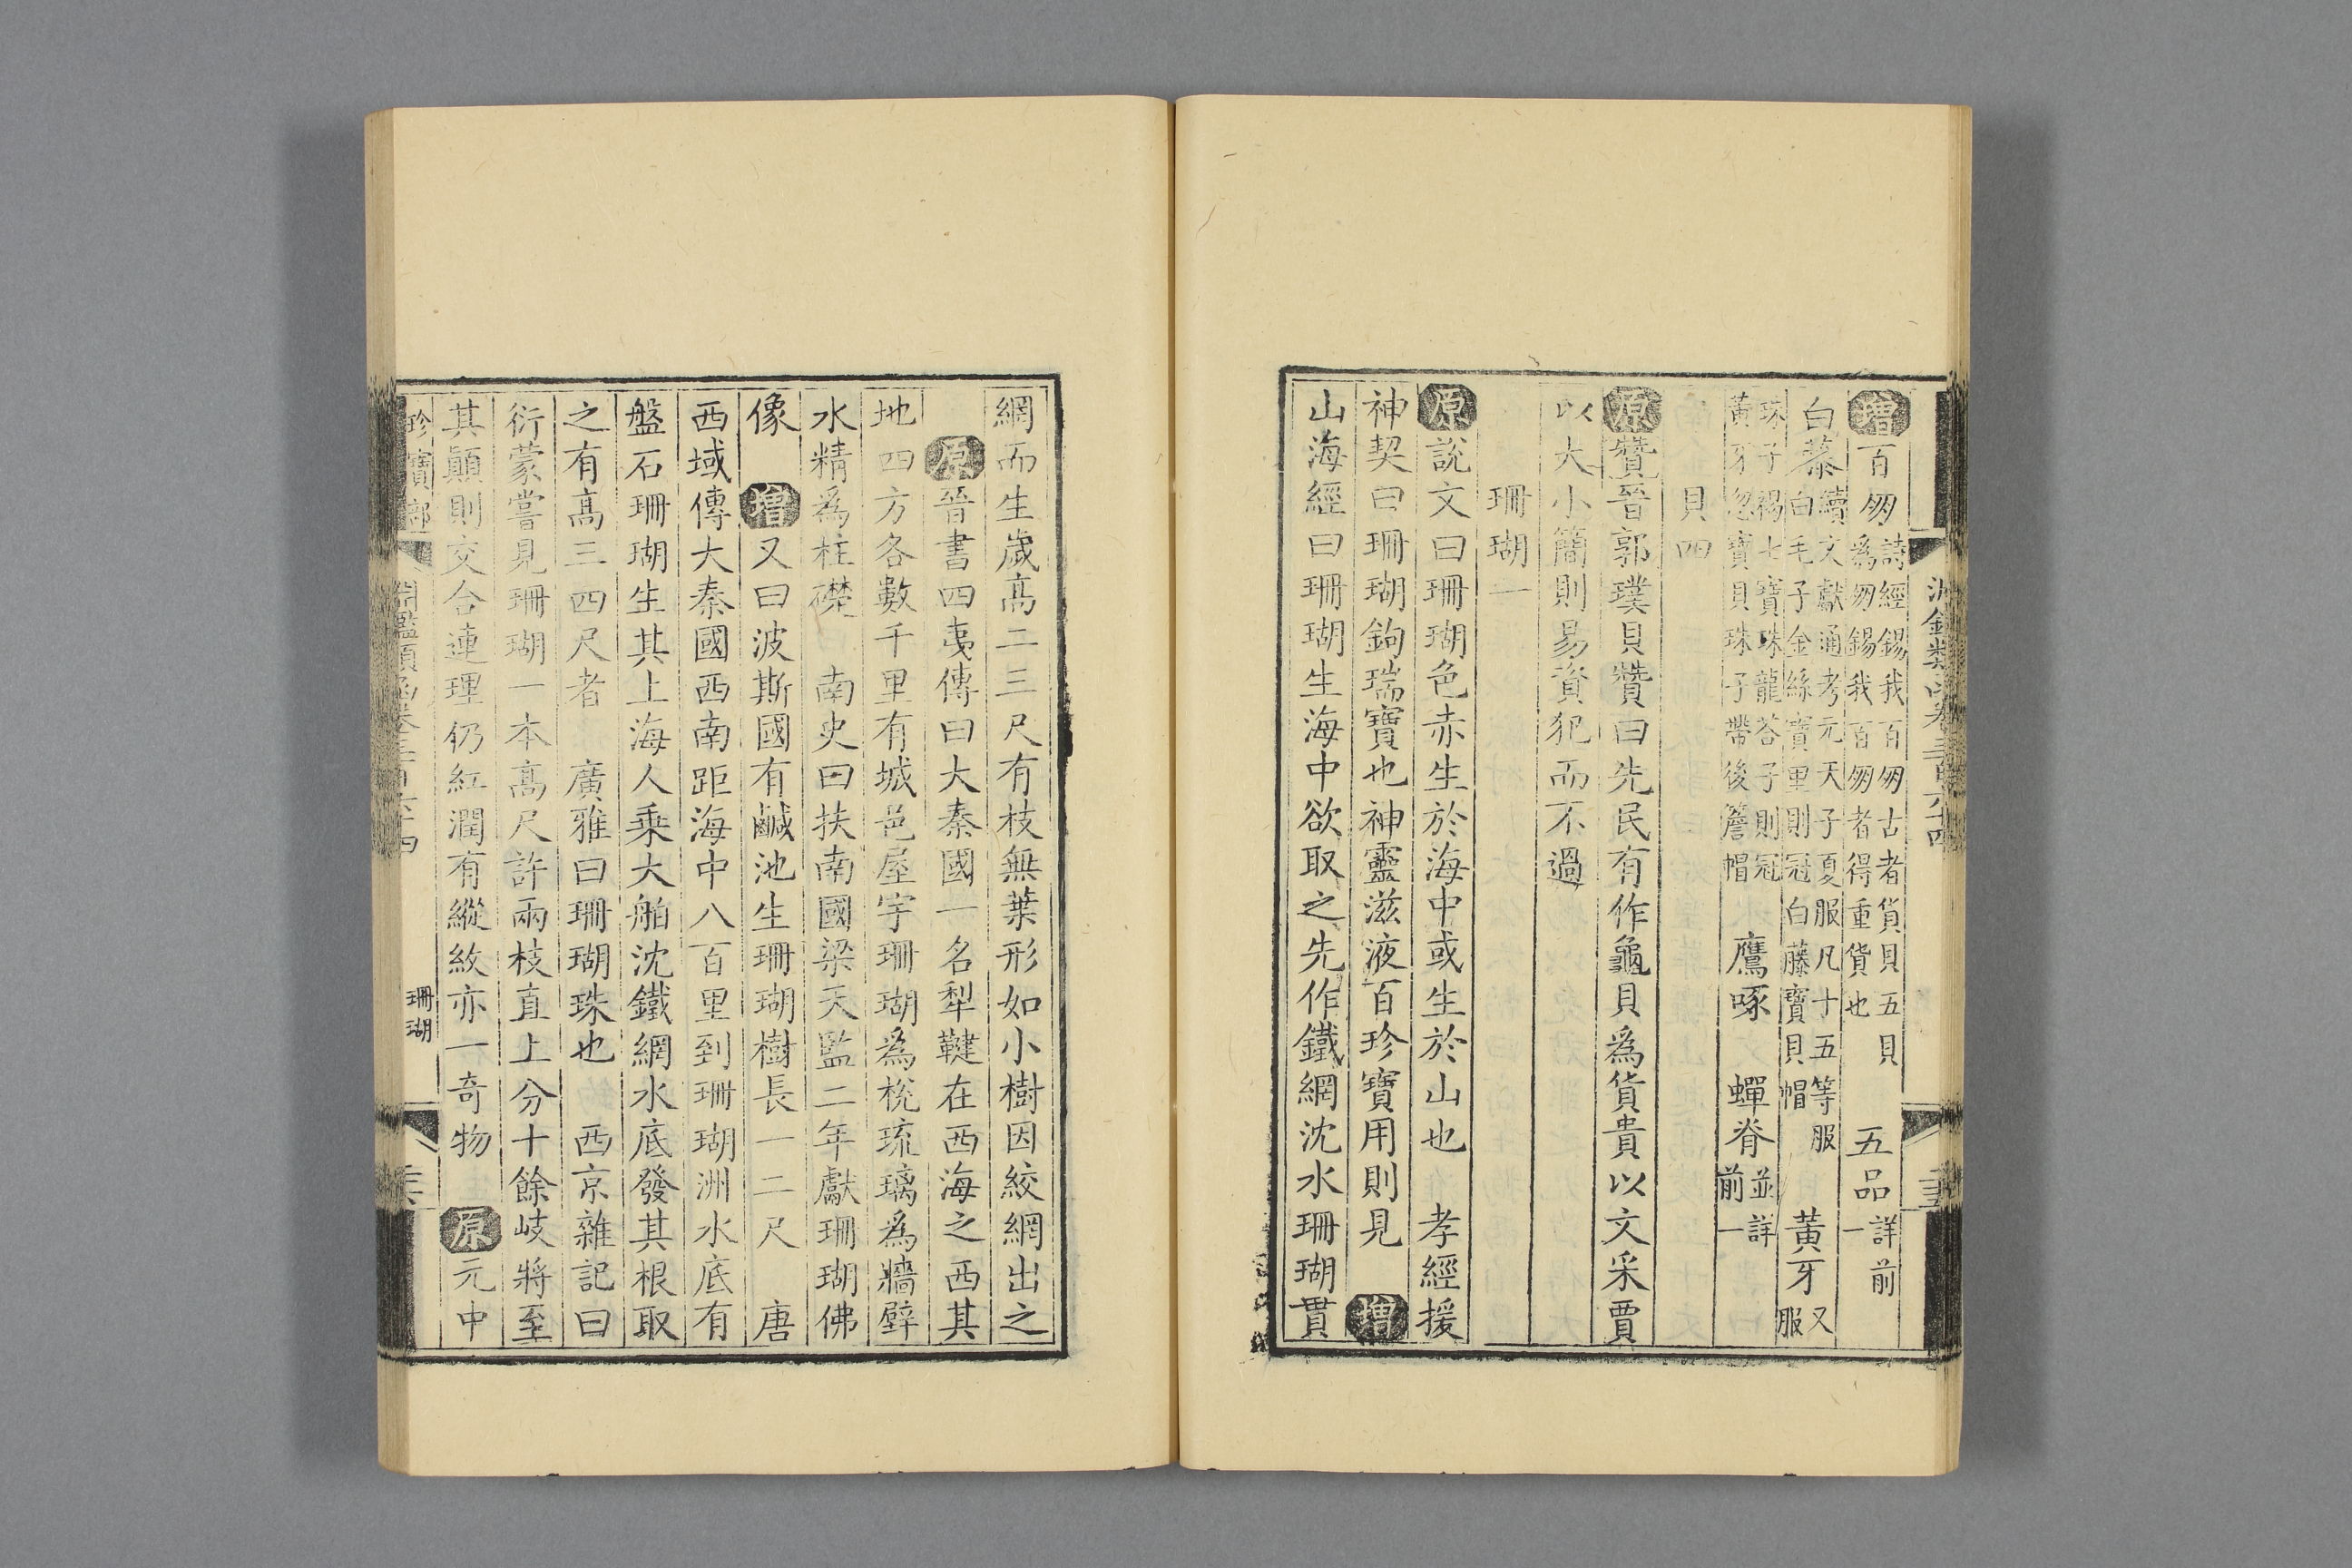 淵鑑類函卷三百六十四
增百朋詩經錫我百朋古者貨貝五貝
爲朋錫我百朋者得重貨也
五品詳前
一
白
續文獻通考元天子夏服凡十五等服
白毛子金絲寶里則冠白藤寶貝帽
黃牙又
服
珠子褐七寶珠龍荅子則冠
黃牙忽寶貝珠子帶後簷帽
鷹啄　蟬脊並詳
前一
貝四
原贊晉郭璞貝贊曰先民有作龜貝爲貨貴以文采賈
以大小簡則易資犯而不過
珊瑚一
原說文曰珊瑚色赤生於海中或生於山也　孝經援
神契曰珊瑚鉤瑞寶也神靈滋液百珍寶用則見　增
山海經曰珊瑚生海中欲取之先作鐵網沈水珊瑚貫
網而生歲高二三尺有枝無葉形如小樹因絞網出之
原晉書四夷傳曰大秦國一名犁鞬在西海之西其
地四方各數千里有城邑屋宇珊瑚爲梲琉璃爲牆壁
水精爲柱礎　南史曰扶南國梁天監二年獻珊瑚佛
像　增又曰波斯國有鹹池生珊瑚樹長一二尺　唐
西域傳大秦國西南距海中八百里到珊瑚洲水底有
盤石珊瑚生其上海人乘大舶沈鐵網水底發其根取
之有高三四尺者　廣雅曰珊瑚珠也　西京雜記曰
衍蒙嘗見珊瑚一本高尺許兩枝直上分十餘岐將至
其顚則交合連理仍紅潤有縱紋亦一奇物　原元中
珍寶部　淵鑑類函卷三百六十四　珊瑚